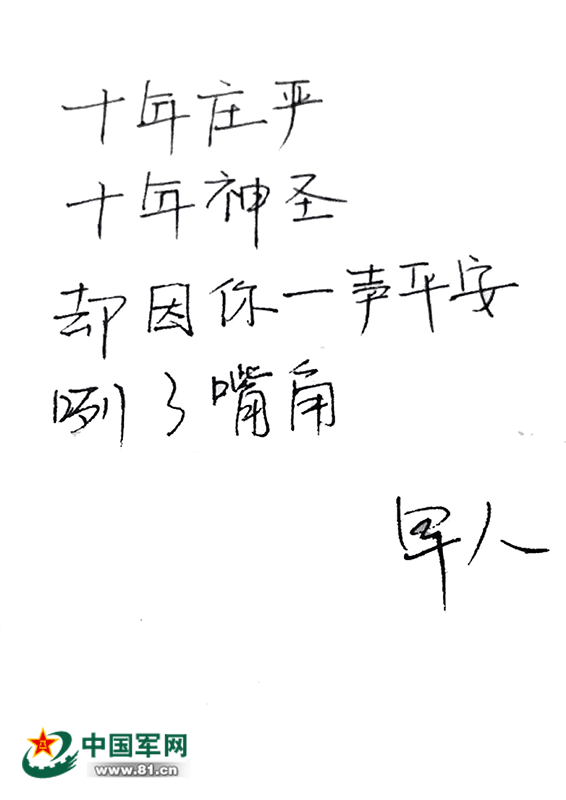 十年庄严
十年神圣
却因你一声平安
咧了嘴角
军人
中国军网
www.81.cn